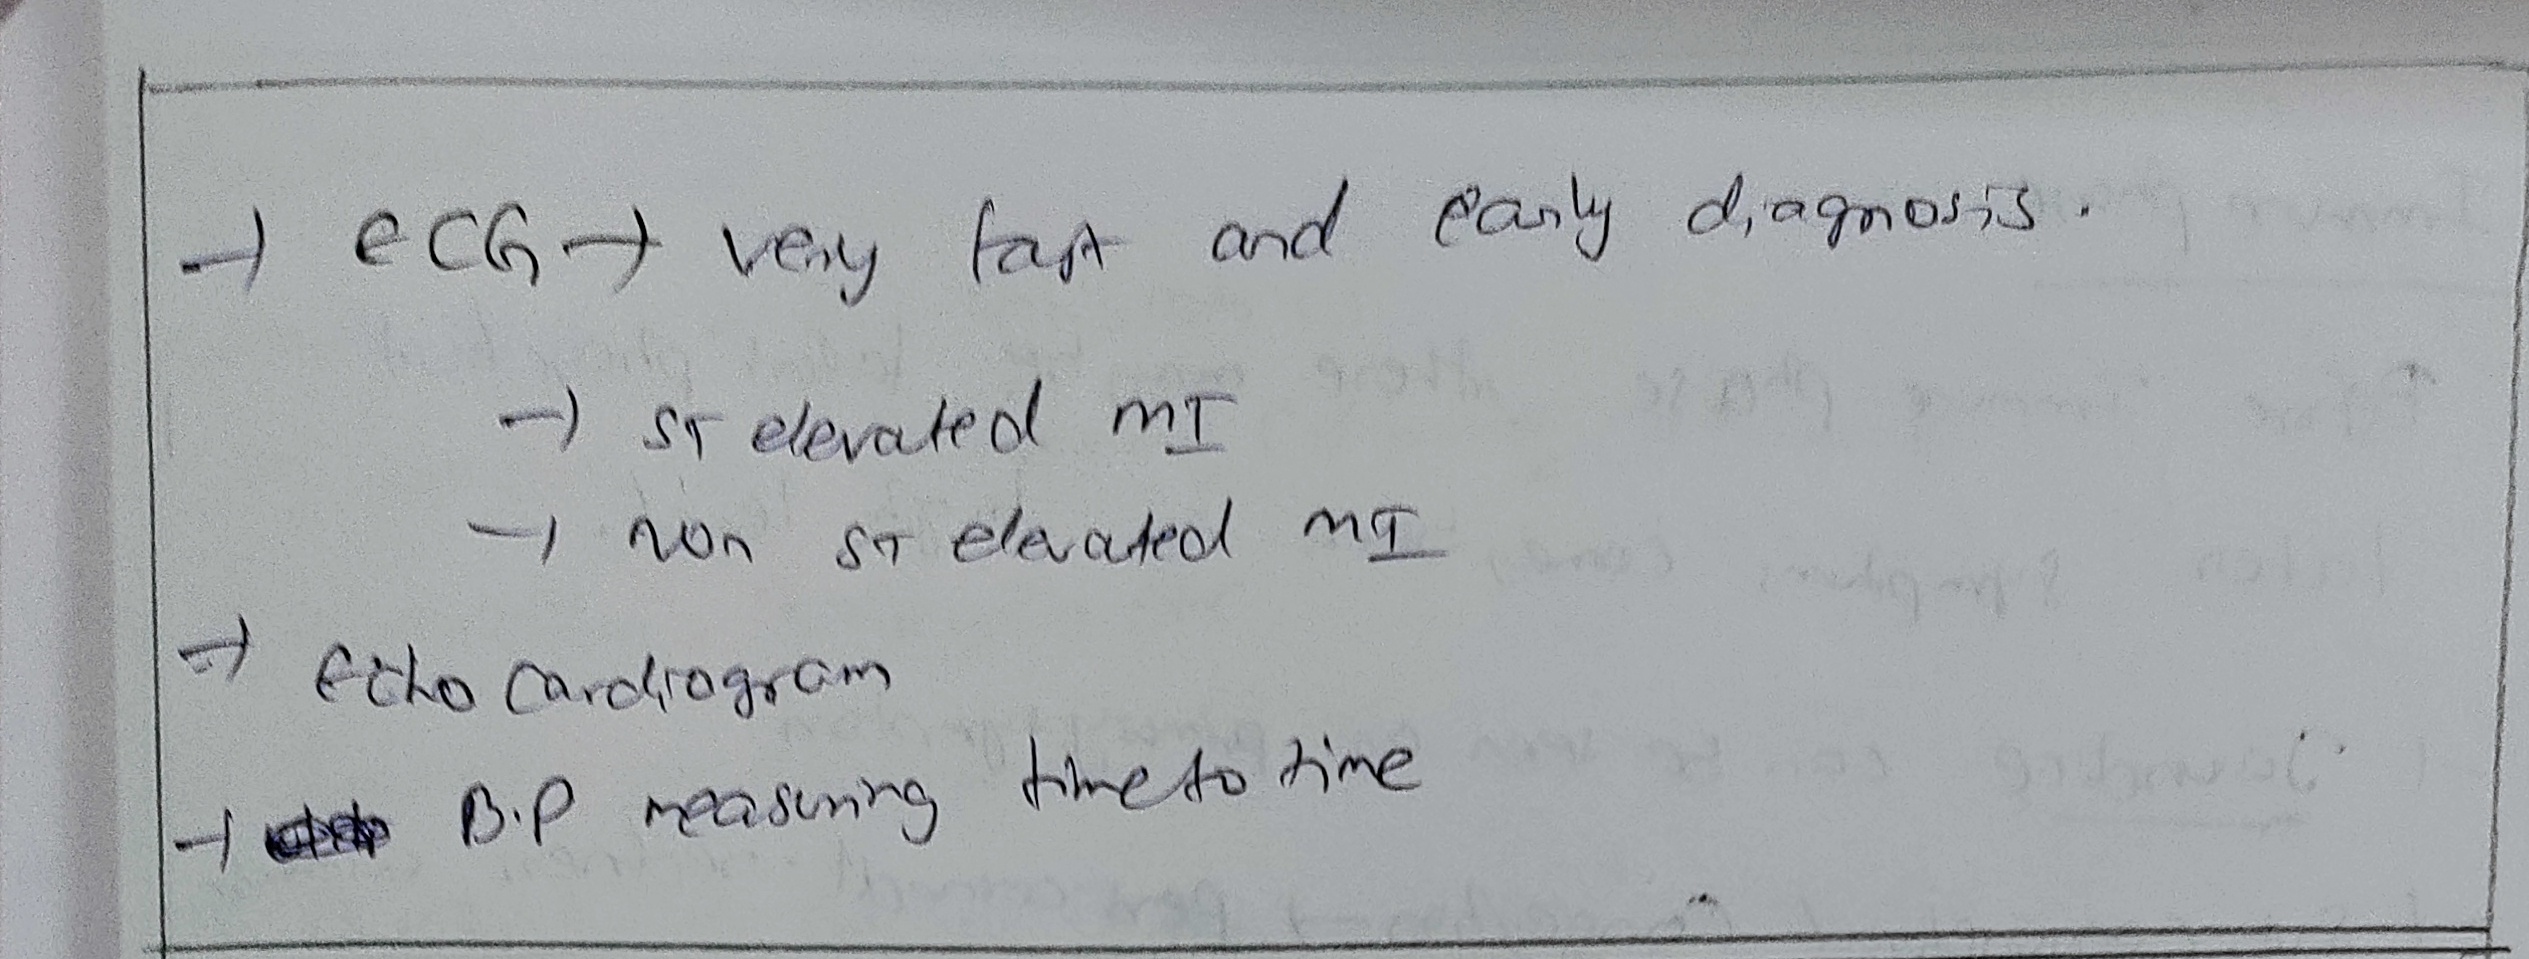 → ECG → very fast and early diagnosis.
→ ST elevated MI
→ non ST elevated MI
→ Echo cardiogram
→ B.P measuring time to time